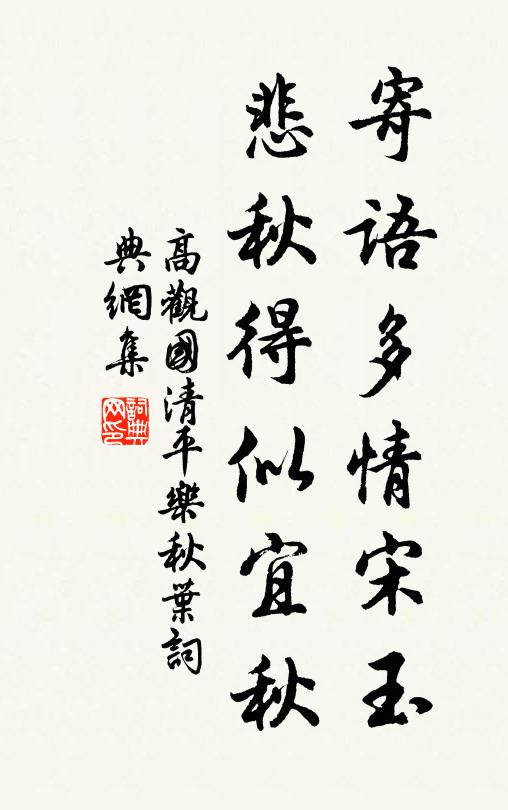 寄語多情宋玉
悲秋得似宜秋
高觀國清平樂秋葉詞
典網集
詞典
网印